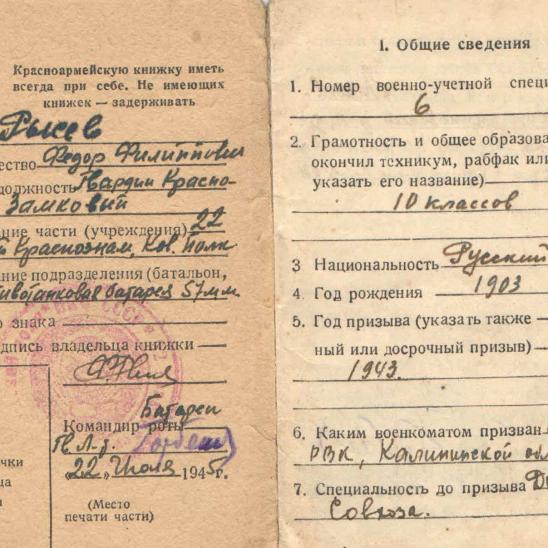 Красноармейскую книжку иметь
всегда при себе. Не имеющих
книжек — задерживать
Рысев
ество Федор Филиппович
должность Гвардии Красно-
Замковый
ание части (учреждения) 22
й Краснознам, Кав. полк
ание подразделения (батальон,
ивотанковая батарея 57мм
о знака
дпись владельца книжки
Батареи
Командир роты
Гв Л-т.
"22" Июля 1945г.
(Место
печати части)
чки
ца
1. Общие сведения
1. Номер военно-учетной специ
6
2. Грамотность и общее образова
окончил техникум, рабфак или
указать его название)
10 классов
3 Национальность Русский
4. Год рождения 1903
5. Год призыва (указать также
ный или досрочный призыв)
1943.
6. Каким военкоматом призван
РВК, Калининской обл
7. Специальность до призыва
Союза.